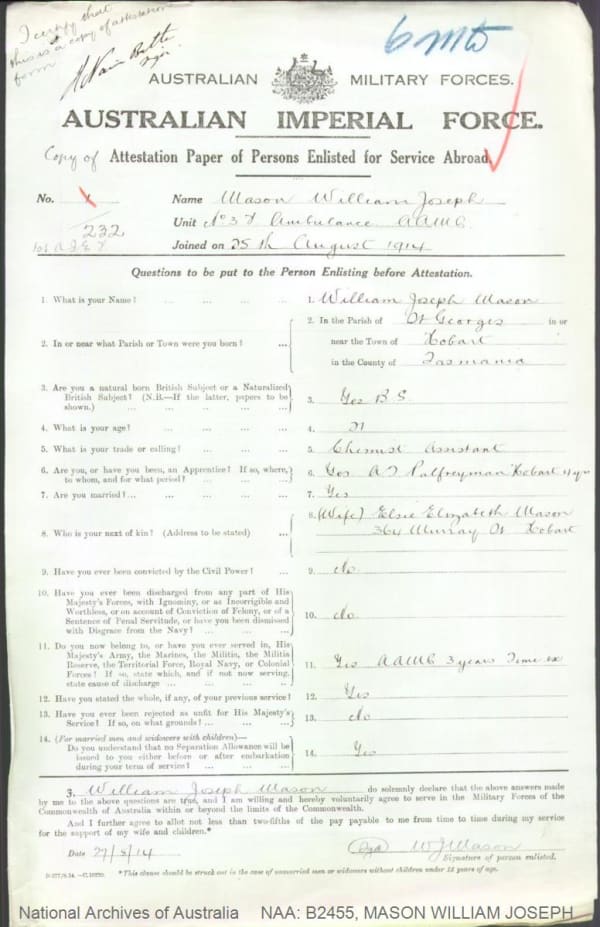 I certify that
this is a copy of attestation
form
6 mts
AUSTRALIAN MILITARY FORCES.
AUSTRALIAN IMPERIAL FORCE.
Copy of Attestation Paper of Persons Enlisted for Service Abroad
No. 1 Name Mason William Joseph
232 Unit No 3 Ambulance AAMC
Joined on 25th August 1914
Questions to be put to the Person Enlisting before Attestation.
1. What is your Name? ... ... ... ... 1. William Joseph Mason
2. In or near what Parish or Town were you born? ... 2. In the Parish of St Georges in or
near the Town of Hobart
in the County of Tasmania
3. Are you a natural born British Subject or a Naturalized
British Subject? (N.B.—If the latter, papers to be
shown.) ... ... ... ... ... 3. Yes B S
4. What is your age? ... ... ... ... 4. 21
5. What is your trade or calling? ... ... ... 5. Chemist Assistant
6. Are you, or have you been, an Apprentice? If so, where,
to whom, and for what period? ... ... ... 6. Yes A T Palfreyman Hobart 4 yrs
7. Are you married? ... ... ... ... ... 7. Yes
8. Who is your next of kin? (Address to be stated) ... 8. (Wife) Elsie Elizabeth Mason
364 Murray St Hobart
9. Have you ever been convicted by the Civil Power? ... 9. No
10. Have you ever been discharged from any part of His
Majesty's Forces, with Ignominy, or as Incorrigible and
Worthless, or on account of Conviction of Felony, or of a
Sentence of Penal Servitude, or have you been dismissed
with Disgrace from the Navy? ... ... ... 10. No
11. Do you now belong to, or have you ever served in, His
Majesty's Army, the Marines, the Militia, the Militia
Reserve, the Territorial Force, Royal Navy, or Colonial
Forces? If so, state which, and if not now serving,
state cause of discharge ... ... ... .. 11. Yes AAMC 3 years Time ex
12. Have you stated the whole, if any, of your previous service? 12. Yes
13. Have you ever been rejected as unfit for His Majesty's
Service? If so, on what grounds? ... ... ... 13. No
14. (For married men and widowers with children)—
Do you understand that no Separation Allowance will be
issued to you either before or after embarkation
during your term of service? ... ... ... 14. Yes
I, William Joseph Mason do solemnly declare that the above answers made
by me to the above questions are true, and I am willing and hereby voluntarily agree to serve in the Military Forces of the
Commonwealth of Australia within or beyond the limits of the Commonwealth.
And I further agree to allot not less than two-fifths of the pay payable to me from time to time during my service
for the support of my wife and children.*
Date 27/8/14 (Sgd) W J Mason
Signature of person enlisted.
*This clause should be struck out in the case of unmarried men or widowers without children under 18 years of age.
National Archives of Australia NAA: B2455, MASON WILLIAM JOSEPH